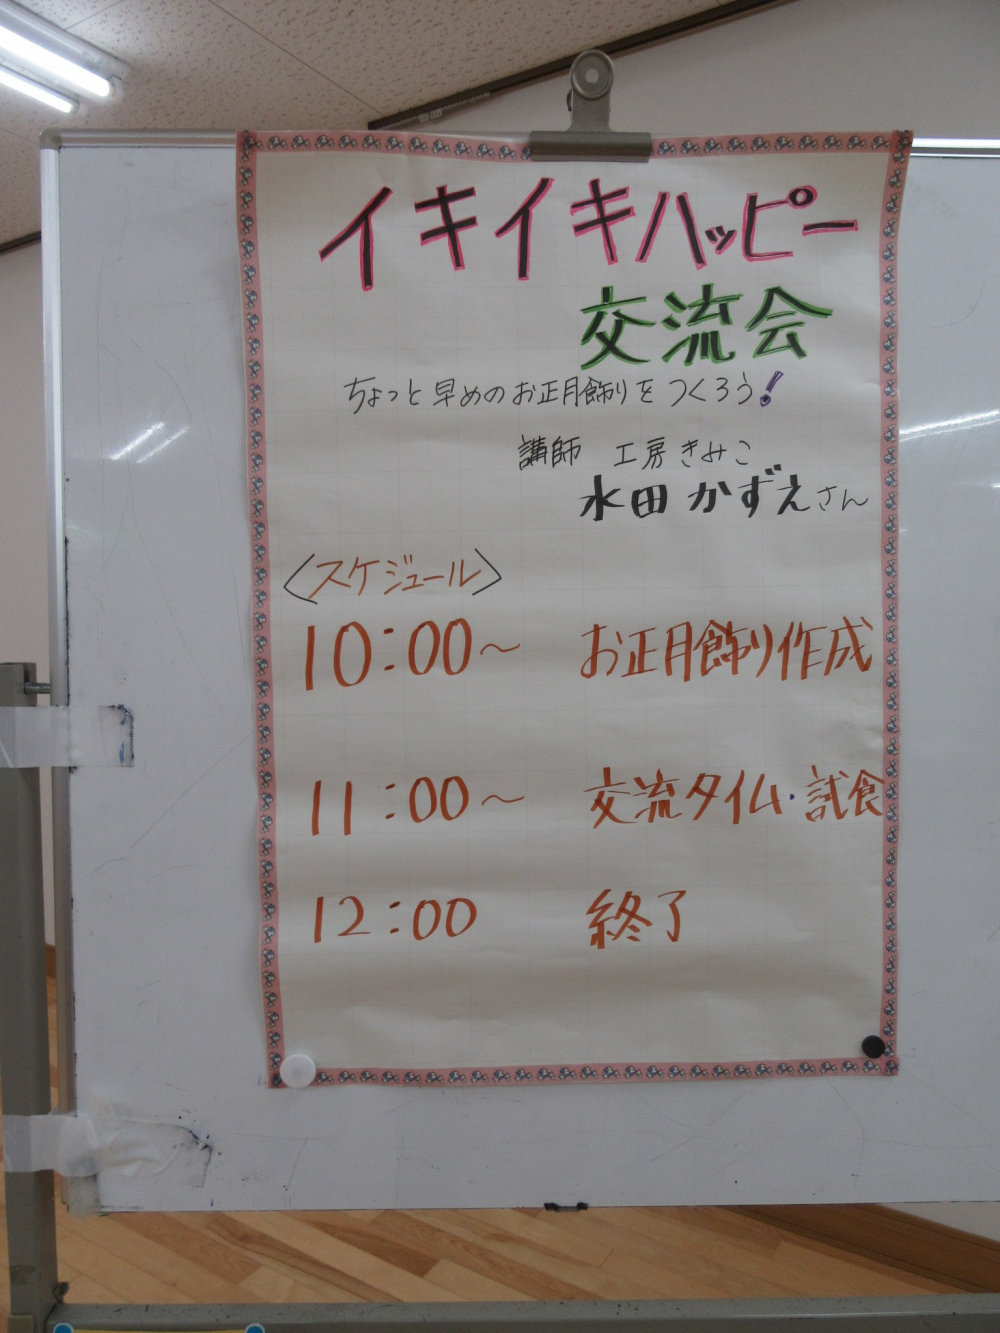 イキイキハッピー
交流会
ちょっと早めのお正月飾りをつくろう!
講師 工房きみこ
水田かずえさん
〈スケジュール〉
10:00〜 お正月飾り作成
11:00〜 交流タイム・試食
12:00 終了